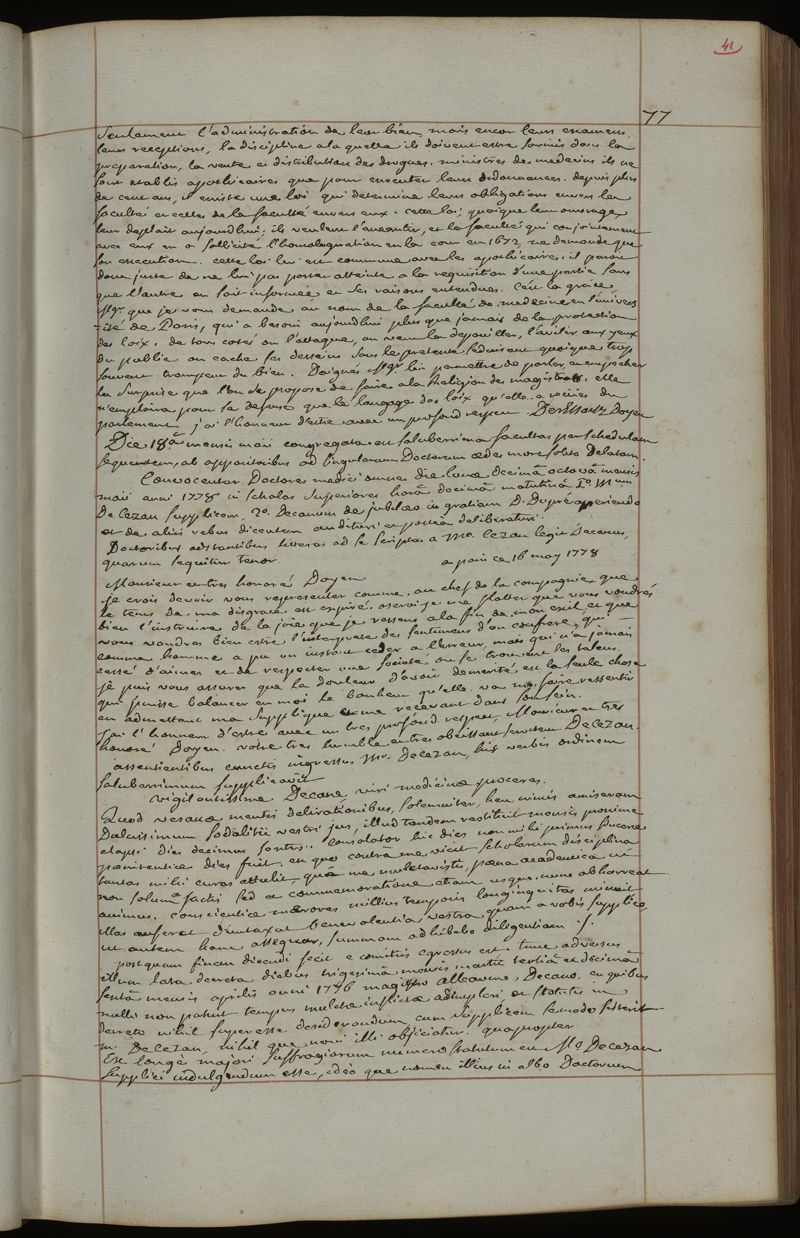 41
77
Seulement l'administration de leur bien, mais encor leurs examens,
leurs receptions, la discipline a la quelle ils doivent estre soumis dans la
preparation, la vente et distribution des drogues. ministres des medecins ils ne
sont etablis apothicaires que pour executer leurs ordonnances. depuis plus
de cent ans, il existe une loi qui determine leurs obligations envers la
faculté et celles de la faculté envers eux. cette loi, quoique leur ouvrage,
leur deplait aujourdhui; ils veulent l'aneantir, et la faculté qui conjointement
avec eux en a sollicité l'homologation en la cour en 1672, ne demande que
son execution. cette loi lui est commune avec les apothicaires. il paroit
donc juste de ne lui pas porter atteinte a la requisition d'une partie sans
que l'autre en soit informée et ses raisons entendues. C'est la grace,
Mgr. que je vous demande au nom de la faculté de medecine en l'univers
-ité de Paris, qui a besoin aujourdhui plus que jamais de la protection
des loix. de tous cotés on l'attaque, on veut la depouiller, l'avilir aux yeux
du public. on cache ses desseins sous le pretexte seduisant quoique trop
souvent trompeur du bien. Daignés Mgr. lui permettre de parler, et empecher
la surprise que l'on se propose de faire a la Religion des magistrats. elle
n'emploira pour sa defense que le langage des loix qu'elle a recües du
parlement. j'ai l'honneur d'estre avec un profond respect. DesEssartz Doyen
Die 18a mensis maii congregata est saluberrima facultas per schedulam
sequentem, ab apparitoribus ad singulorum Doctorum aedes more solito Delatam.
Convocentur Doctores medici omnes die lunae decimâ octavâ mensis
maii anni 1778 in scholas superiores horâ decimâ matutinâ 1o. Mum
De Cezan supplicem, 2o. Decanum de jubilaeo in gratiam D. Dupré aperiendo
et de aliis rebus dicentem audituri et postea deliberaturi.
Doctoribus adstantibus litteras ad se scriptas a Mro. Cezan legit Decanus,
quarum sequitur tenor. a paris ce 16 may 1778
Monsieur et tres honoré Doyen
Je crois devoir vous representer comme au chef de la compagnie que
le tems de ma disgrace est expiré. oserai-je me flatter que vous voudrés
bien l'instruire de la joie que je ressens a la fin de mon exil, et que
vous voudres bien estre l'interprete des sentimens d'un confrere, qui
comme homme a pu un instant ceder a l'erreur, mais qui n'a jamais
cessé d'aimer et de respecter une societé ou se trouvent les talens.
je puis vous assurer que la douleur d'avoir demerité est la seule chose
qui puisse balancer en moi le bonheur qu'elle va me faire ressentir
en admettant ma supplique et me recevant dans son sein.
j'ai l'honneur d'estre avec un tres profond respect, Monsieur et tres
honoré Doyen. votre tres humble et tres obeissant serviteur De Cezan.
assentientibus cunctis ingressus Mr. De Cezan, his verbis ordinem
saluberrimum supplicavit
Vigilantissime Decane, viri medicinae proceres.
Quod vesana mentis delirationibus, solemniter, heu nimis amiseram
Dulcissimum sodalitii vestri jus, illud tandem restituit mensis proxime
elapsi dies decimus sextus. consolator hic dies non mihi primus sincerae
poenitentiae dies fuit, ex quo contrà me vicit scholarum disciplina
tantas mihi curas attulit, quâ me mulctavistis, poena academica ut
non solum a factis sed a commemoratione etiam usque nunc abhorreat
animus. conscientiae moerores nullius temporis longinquitas minuit
illos auferet duntaxat benevolentia vestra quam a vobis supplico
ut autem hanc assequar, summam adhibebo diligentiam.
postquam finem dicendi fecit e comitiis egressus est. tunc adversus
illum lata decreta diebus trigesimâ mensis martii tertiâ et decimâ
sextâ mensis aprilis anni 1776 magistro alleaume, Decano, ex quibus
nulli non patuit tempus mulctae inflictae adimpleri et statutis in
decreto nihil superesse desiderandum, cum supplicem se modo stiterit
M. De Cezan, nihil que novi illi objiciatur. quapropter
Ex longè majori suffragiorum numero statutum est Mo De Cezan
supplici indulgendum esse, ideo que nomen illius in albo Doctorum